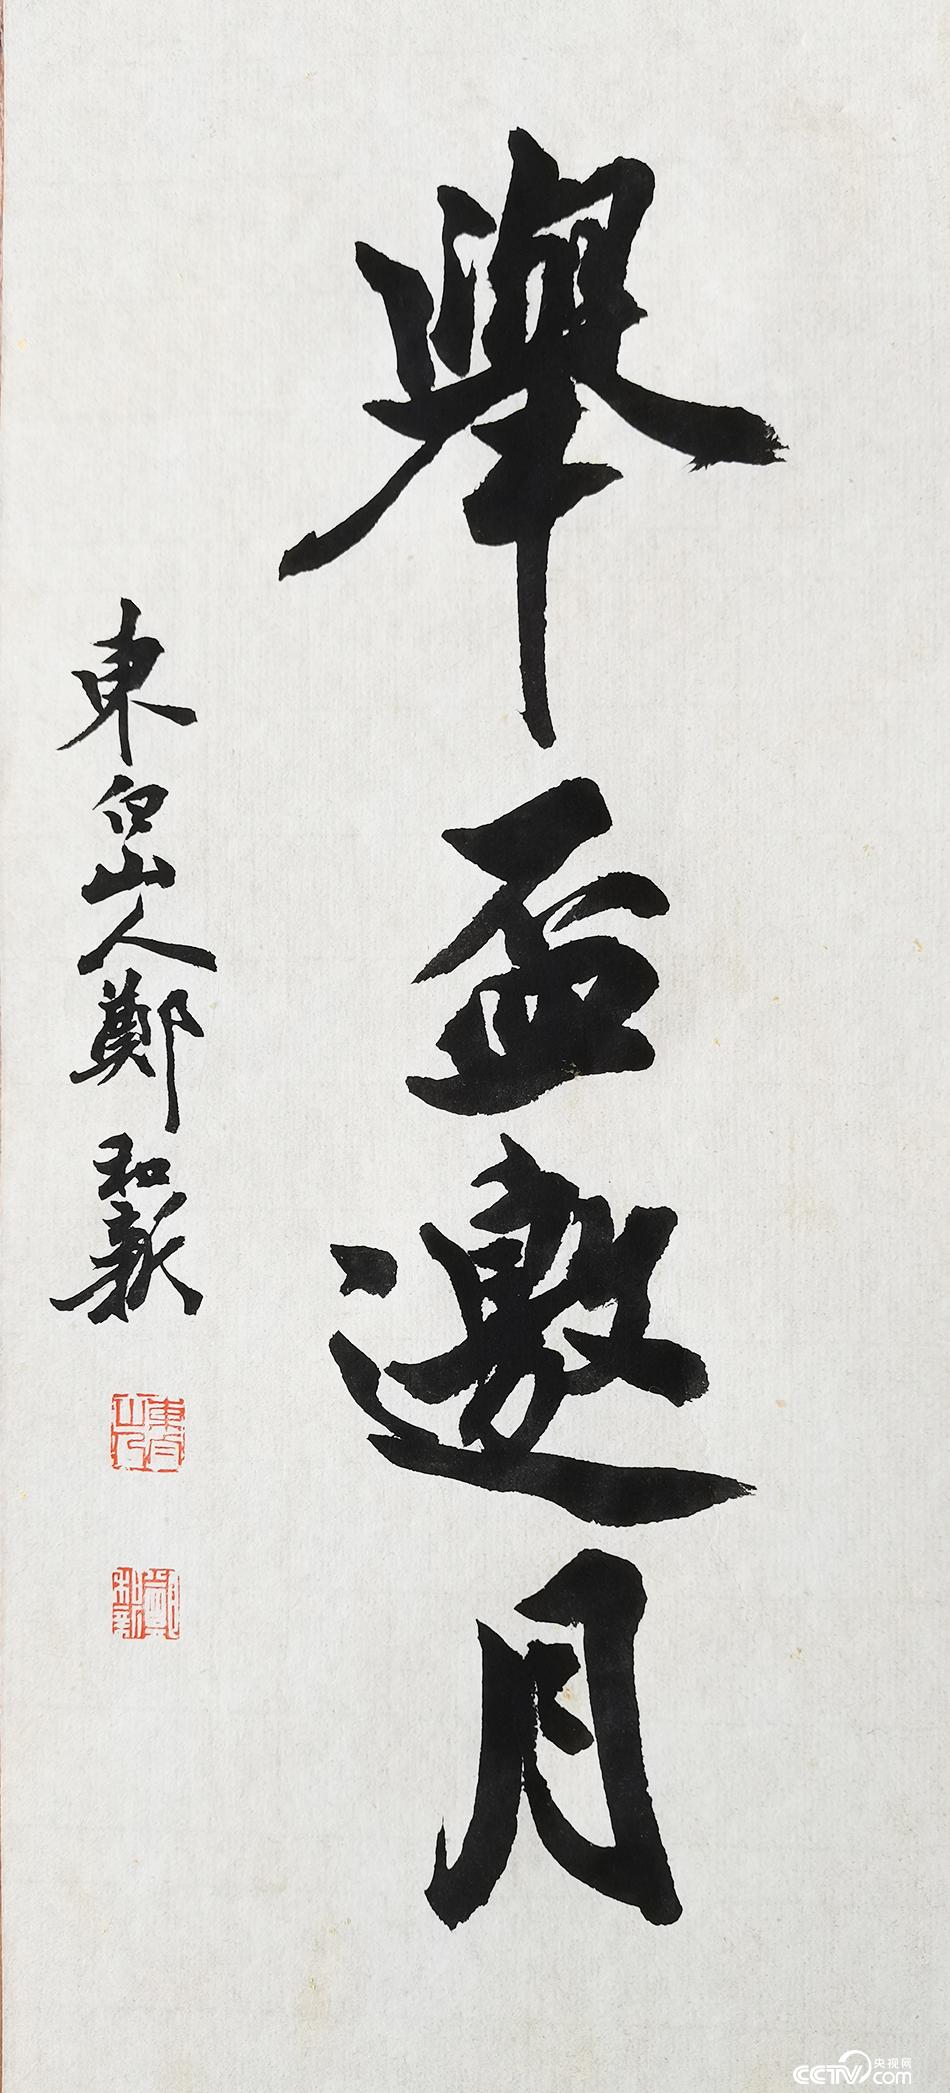 舉盃邀月
東白山人鄭和新
東白山人
鄭和新
央视网
CCTV.com